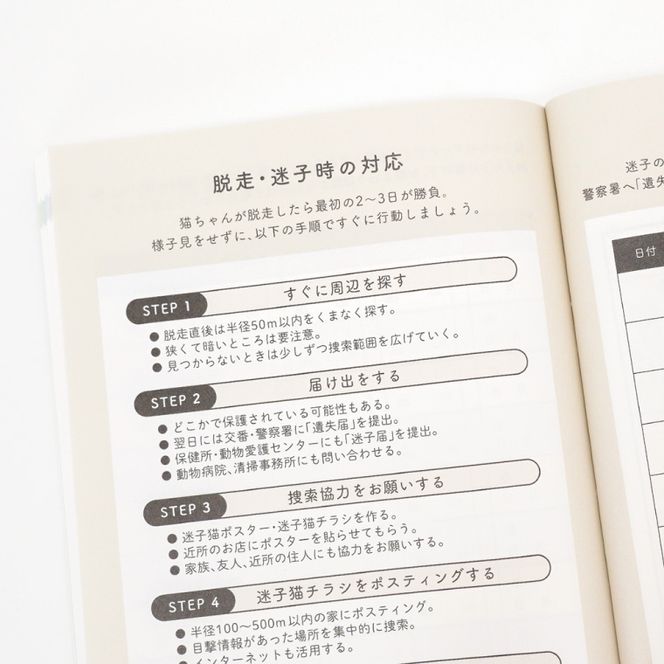 脱走・迷子時の対応
猫ちゃんが脱走したら最初の2〜3日が勝負。
様子見をせずに、以下の手順ですぐに行動しましょう。
STEP 1 すぐに周辺を探す
● 脱走直後は半径50m以内をくまなく探す。
● 狭くて暗いところは要注意。
● 見つからないときは少しずつ捜索範囲を広げていく。
STEP 2 届け出をする
● どこかで保護されている可能性もある。
● 翌日には交番・警察署に「遺失届」を提出。
● 保健所・動物愛護センターにも「迷子届」を提出。
● 動物病院、清掃事務所にも問い合わせる。
STEP 3 捜索協力をお願いする
● 迷子猫ポスター・迷子猫チラシを作る。
● 近所のお店にポスターを貼らせてもらう。
● 家族、友人、近所の住人にも協力をお願いする。
STEP 4 迷子猫チラシをポスティングする
● 半径100〜500m以内の家にポスティング。
● 目撃情報があった場所を集中的に捜索。
● インターネットも活用する。
迷子の
警察署へ「遺失
日付